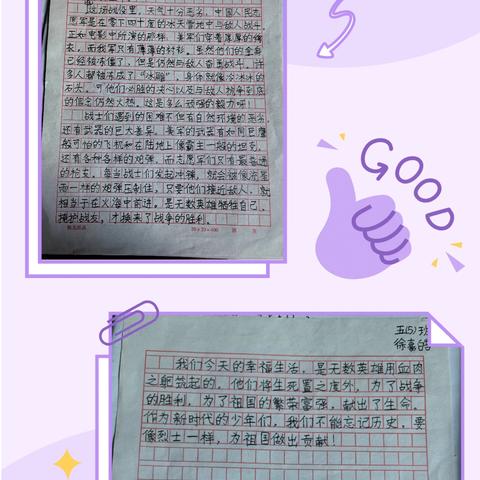 这场战役里，天气十分恶劣，中国人民志
愿军是在零下四十度的冰天雪地中与敌人战斗，
正如电影中所演的那样，美军们穿着厚厚的棉
衣，而我军只有薄薄的衬衫。虽然他们的全身
已经被冻僵了，但是仍然与敌人奋勇战斗。许
多人都被冻成了“冰雕”，身体就像冷冰冰的
石头，可他们必胜的决心以及与敌人抗争到底
的信念仍然火热。这是多么顽强的毅力呀！
战士们遇到的困难不但有自然环境的恶劣，
还有武器的巨大差异。美军的武器有如同巨鹰
般可怕的飞机和在陆地是像霸主一般的坦克，
还有各种各样的炮弹。而志愿军们只有最普通
的枪支。每当战士们发起冲锋，就会被像流星
雨一样的炮弹压制住，只要他们接近敌人，就
相当于在火海中前进。是无数英雄牺牲自己，
掩护战友，才换来了战争的胜利。
20×20=400
GOOD
五(5)班
徐嘉皓
我们今天的幸福生活，是无数英雄用血肉
之躯筑起的，他们将生死置之度外，为了战争
的胜利，为了祖国的繁荣富强，献出了生命。
作为新时代的少年们，我们不能忘记历史，要
像烈士一样，为祖国做出贡献！